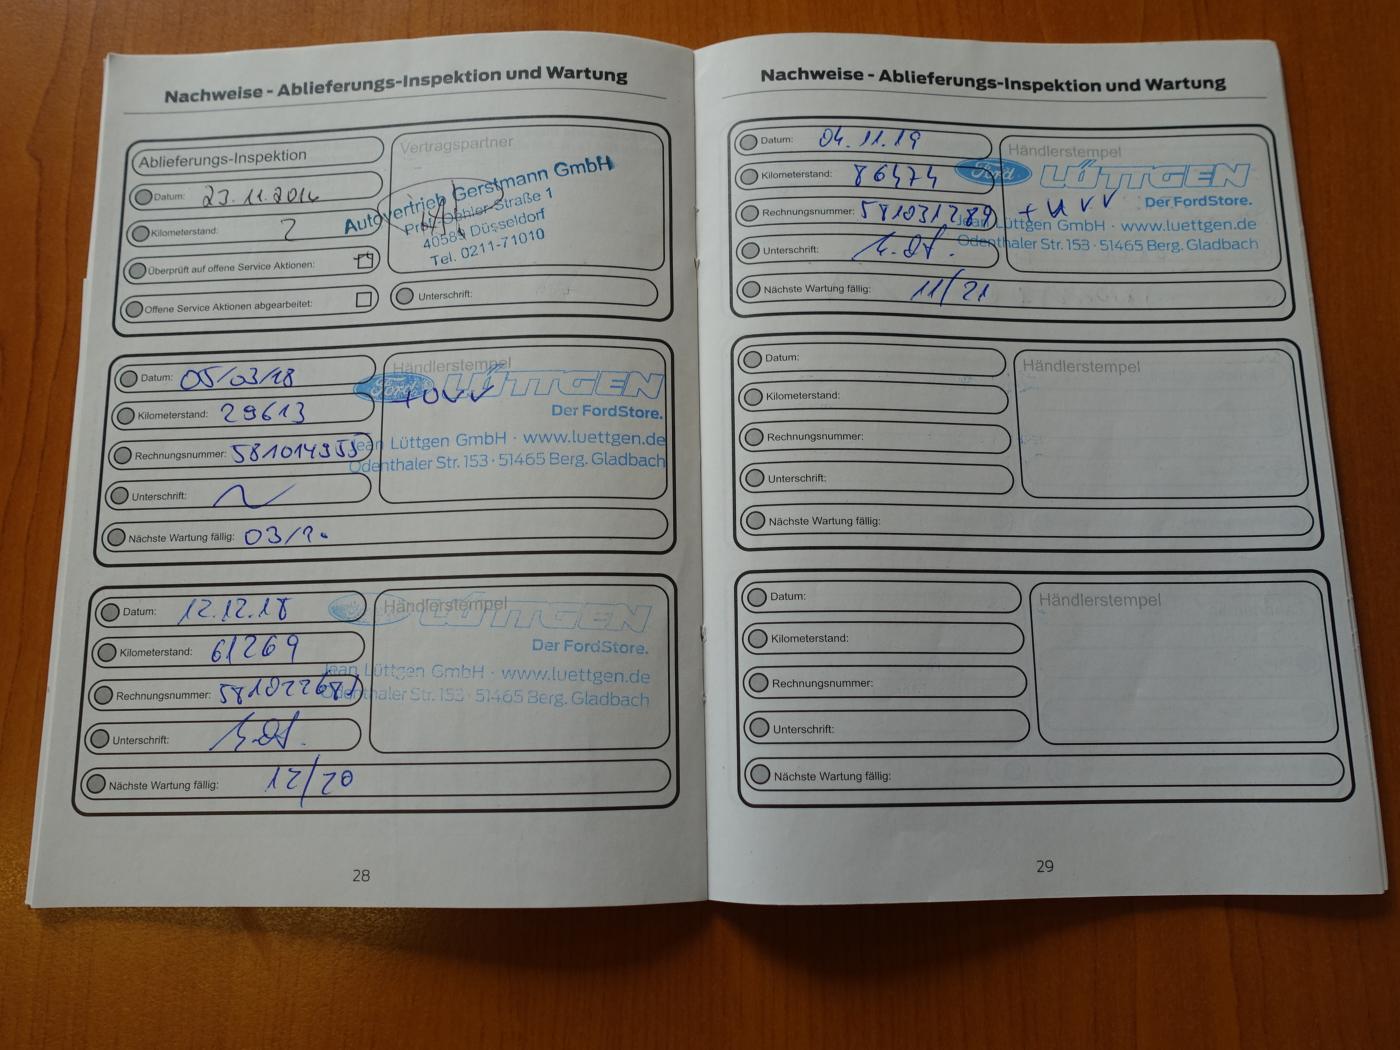 Nachweise - Ablieferungs-Inspektion und Wartung
Ablieferungs-Inspektion
Datum: 23.11.2016
Kilometerstand: 2
Überprüft auf offene Service Aktionen:
Offene Service Aktionen abgearbeitet:
Vertragspartner
Autovertrieb Gerstmann GmbH
Prof.-Oehler-Straße 1
40589 Düsseldorf
Tel. 0211-71010
Unterschrift:
Datum: 05/03/18
Kilometerstand: 29613
Rechnungsnummer: 581014955
Unterschrift:
Nächste Wartung fällig: 03/
Händlerstempel
Ford LÜTTGEN
Der FordStore.
Jean Lüttgen GmbH · www.luettgen.de
Odenthaler Str. 153 · 51465 Berg. Gladbach
Datum: 12.12.18
Kilometerstand: 61269
Rechnungsnummer:
Unterschrift:
Nächste Wartung fällig: 12/20
Händlerstempel
LÜTTGEN
Der FordStore.
Jean Lüttgen GmbH · www.luettgen.de
Odenthaler Str. 153 · 51465 Berg. Gladbach
28
Nachweise - Ablieferungs-Inspektion und Wartung
Datum: 04.11.19
Kilometerstand: 86474
Rechnungsnummer: 581031289
Unterschrift:
Nächste Wartung fällig: 11/21
Händlerstempel
Ford LÜTTGEN
Der FordStore.
Jean Lüttgen GmbH · www.luettgen.de
Odenthaler Str. 153 · 51465 Berg. Gladbach
Datum:
Kilometerstand:
Rechnungsnummer:
Unterschrift:
Nächste Wartung fällig:
Händlerstempel
Datum:
Kilometerstand:
Rechnungsnummer:
Unterschrift:
Nächste Wartung fällig:
Händlerstempel
29